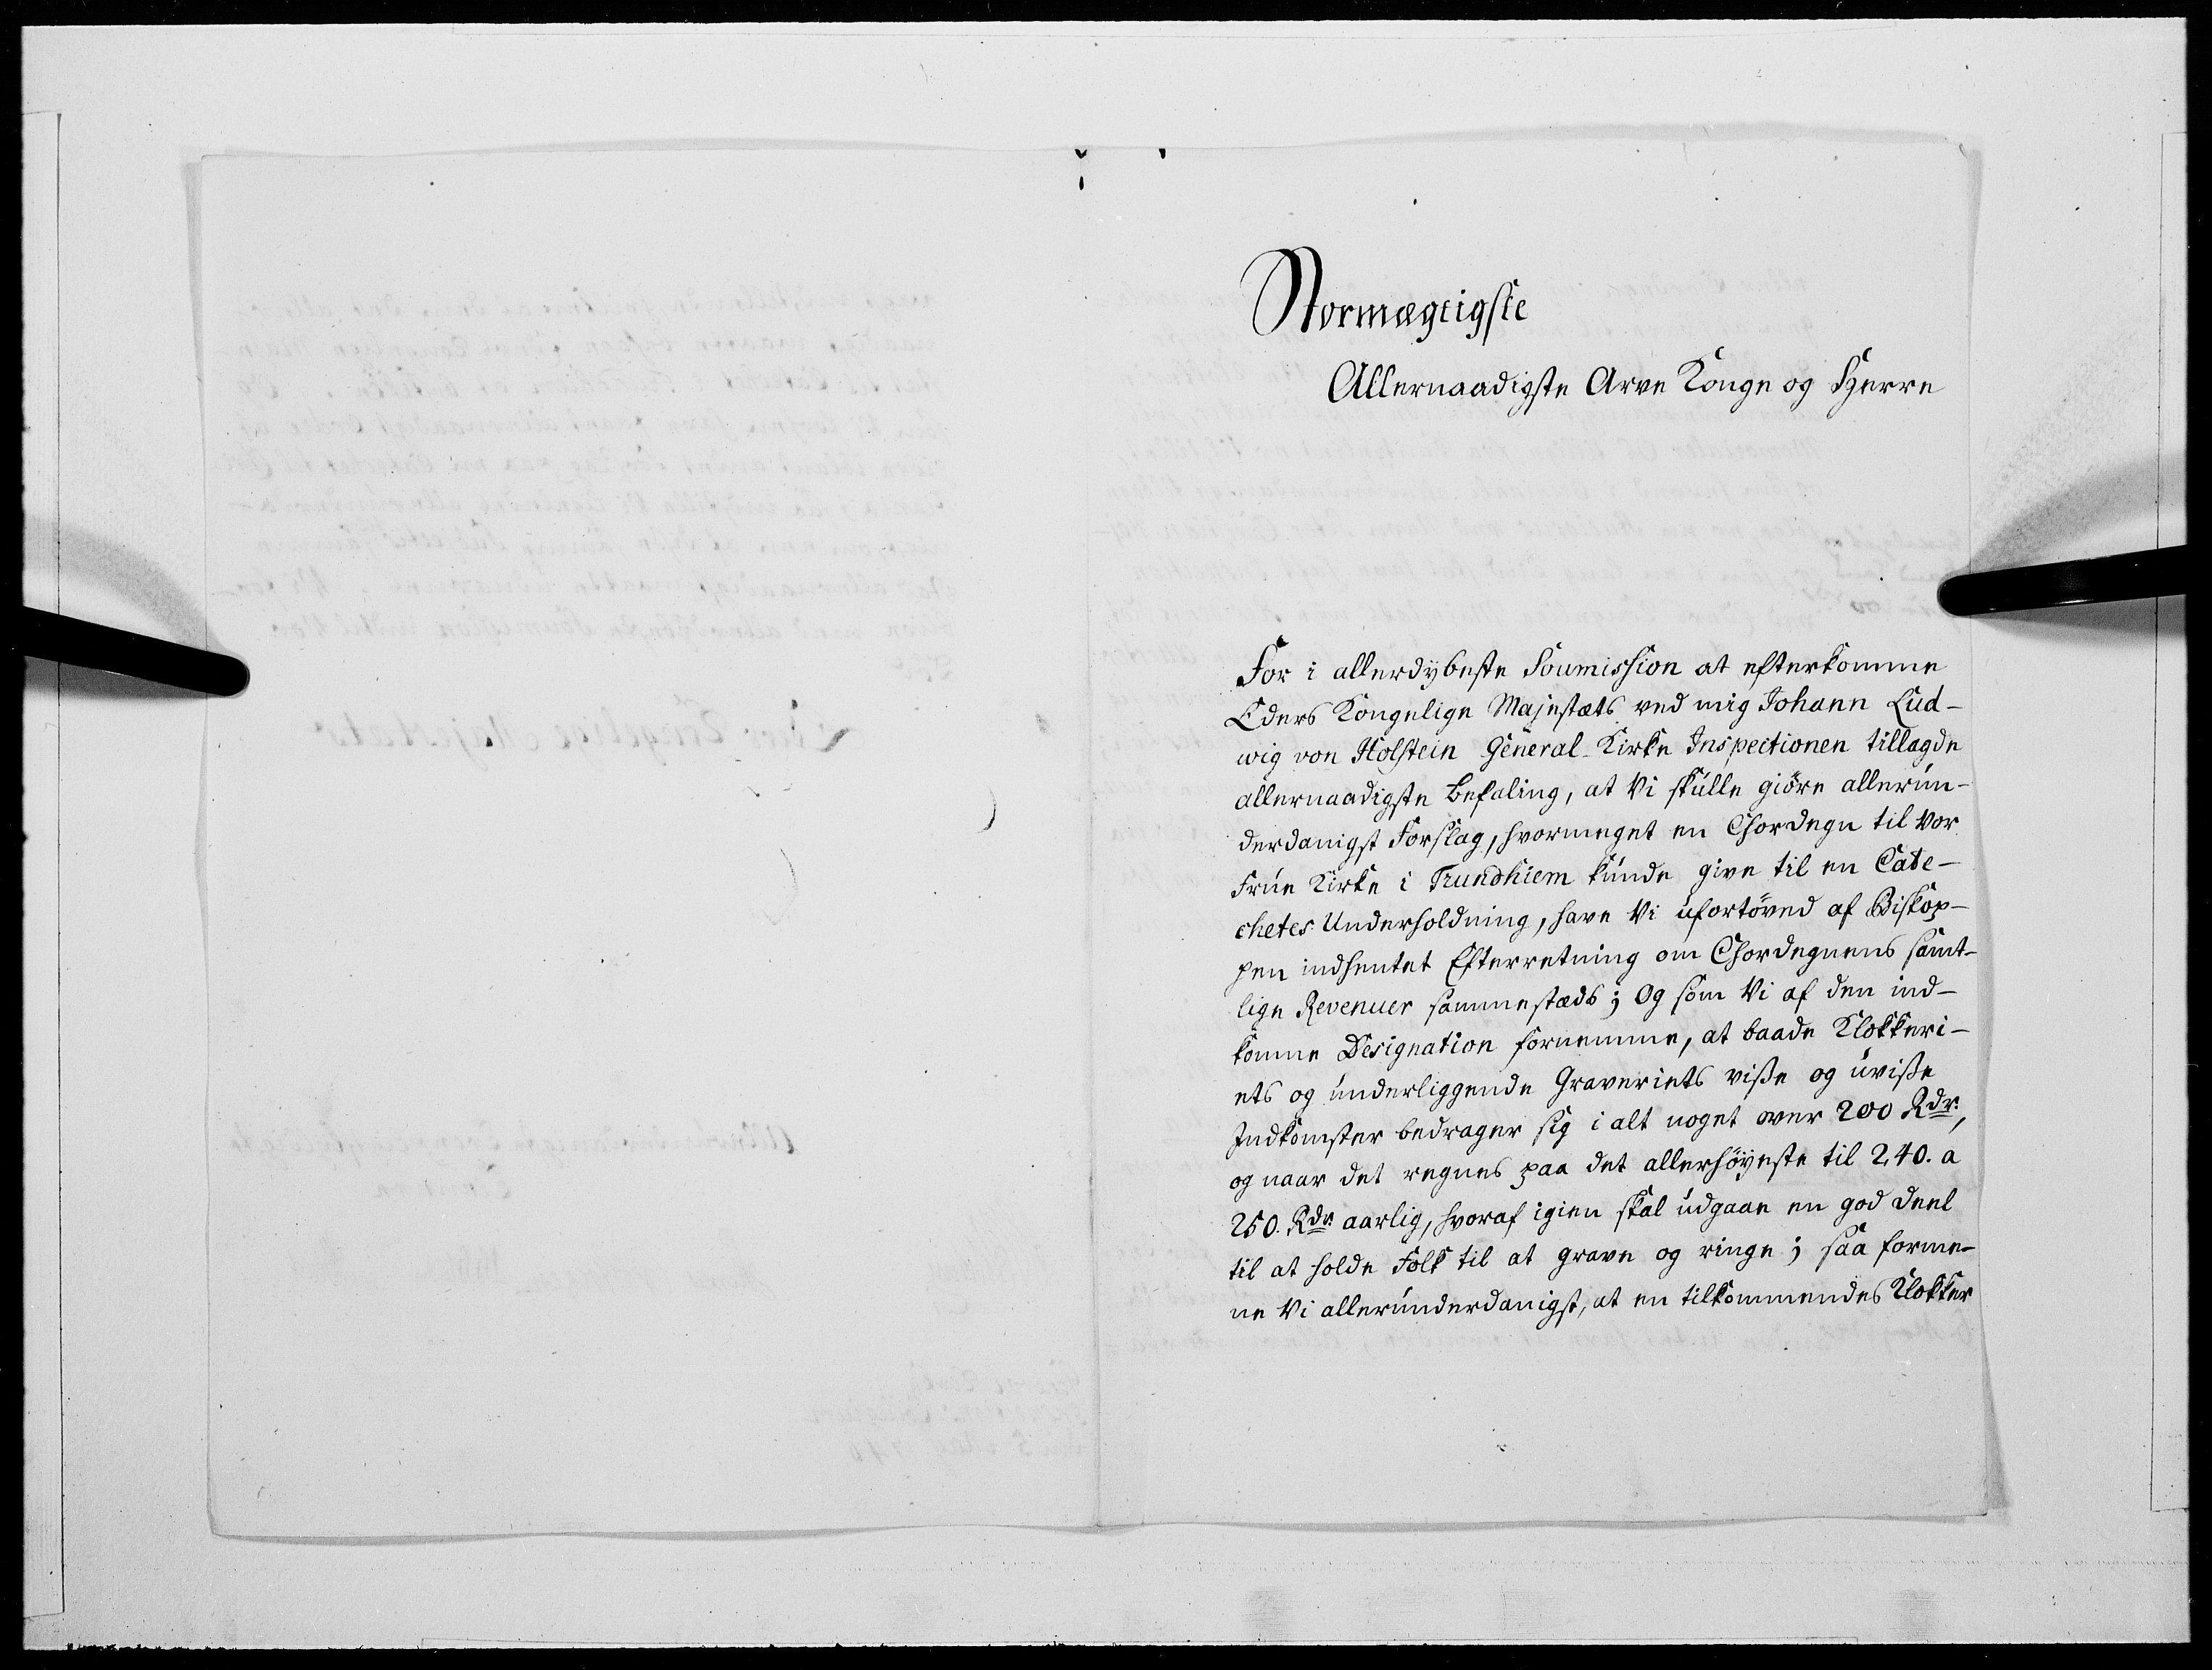 Stormægtigste
Allernaadigste Arve Konge og Herre
For i allerdybeste Soumission at efterkomme
Eders Kongelige Majestæts ved mig Johann Lud-
wig von Holstein General-Kirke Inspectionen tillagde
allernaadigste Befaling, at Vi skulle giöre allerun-
derdanigst Forslag, hvormeget en Chordegn til Vor
Frue Kirke i Trundhiem kunde give til en Cate-
chetes Underholdning, have Vi ufortöved af Biskop-
pen indhentet Efterretning om Chordegnens samt-
lige Revenuer sammestæds; Og som Vi af den ind-
komne Designation fornemme, at baade Klokkeri-
ets og underliggende Graveriets visse og uvisse
Indkomster bedrager sig i alt noget over 200 Rdr.,
og naar det regnes paa det allerhöyeste til 240. a
250. Rdr. aarlig, hvoraf igien skal udgaae en god deel
til at holde Folk til at grave og ringe; saa forme-
ne Vi allerunderdanigst, at en tilkommendes Klokker